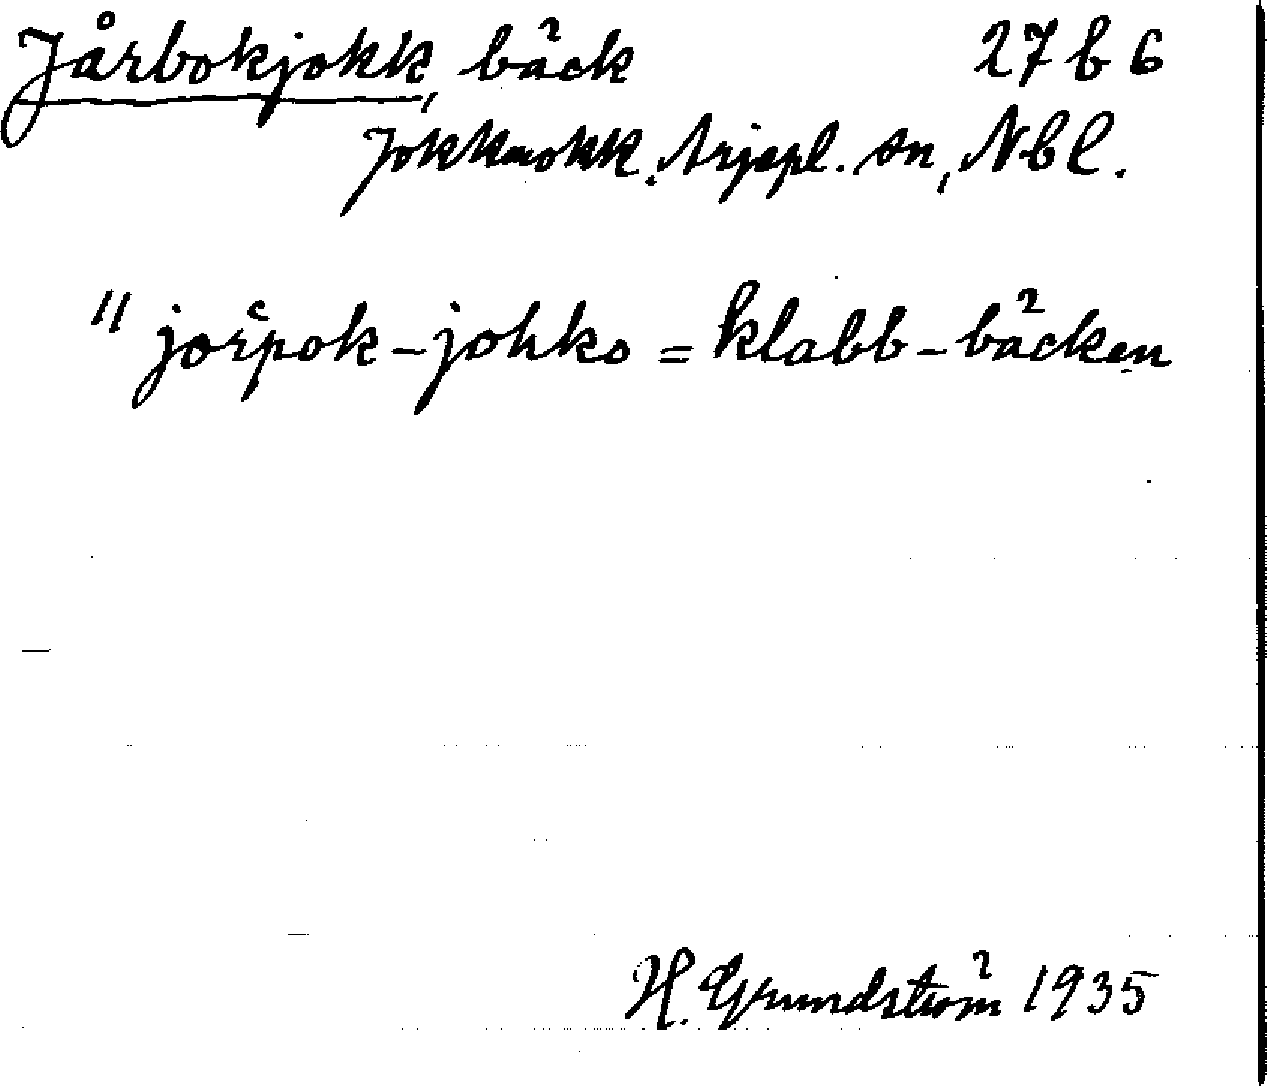 Jårbokjokk, bäck 27 b 6
Jokkmokk. Arjepl. sn, Nbl.
" jorpok-johko = klabb-bäcken
H. Grundström 1935